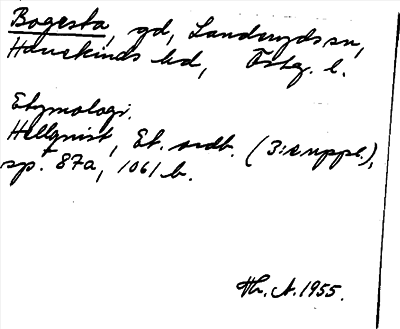 Bogesta, gd, Landeryds sn,
Hanekinds hd, Östg. l.
Etymologi.
Hellquist, Et. ordb. (3:e uppl.),
sp. 87a, 1061 b.
Hr. A. 1955.